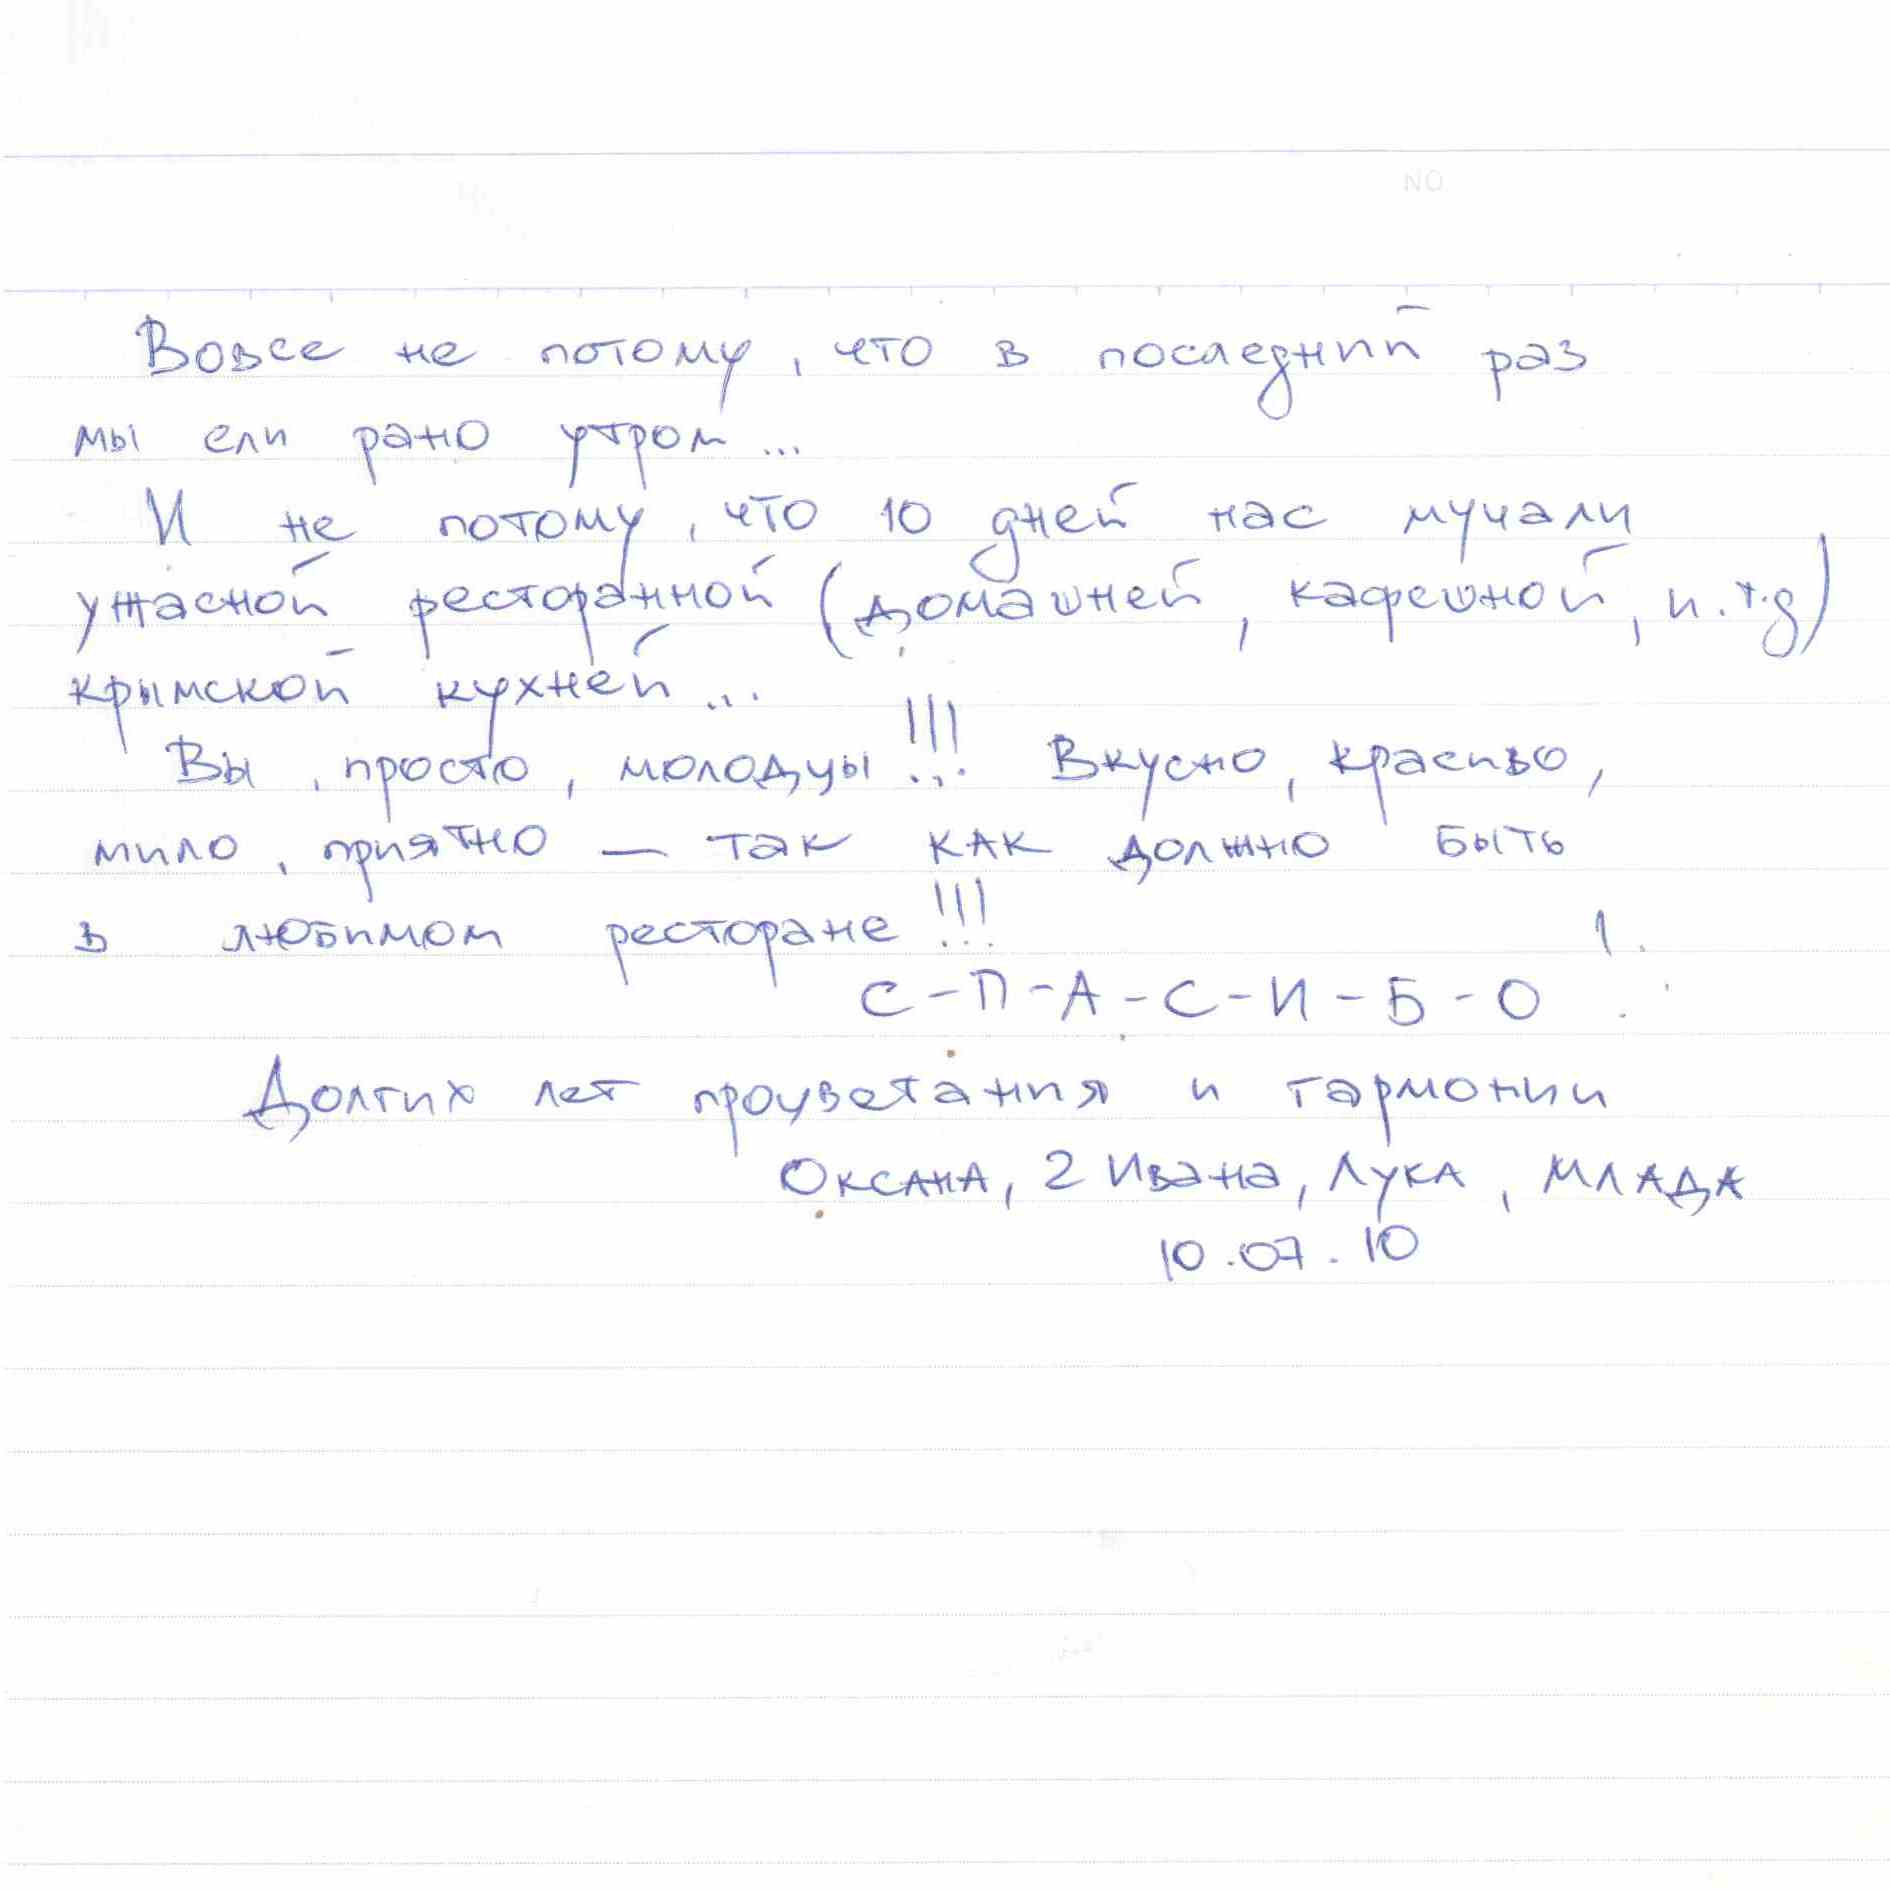 Вовсе не потому, что в последний раз
мы ели рано утром...
И не потому, что 10 дней нас мучали
ужасной ресторанной (домашней, кафешной, и.т.д)
крымской кухней...
Вы, просто, молодцы!!! Вкусно, красиво,
мило, приятно — так как должно быть
в любимом ресторане!!!
С-П-А-С-И-Б-О !
Долгих лет процветания и гармонии
Оксана, 2 Ивана, Лука, Млада
10.07.10